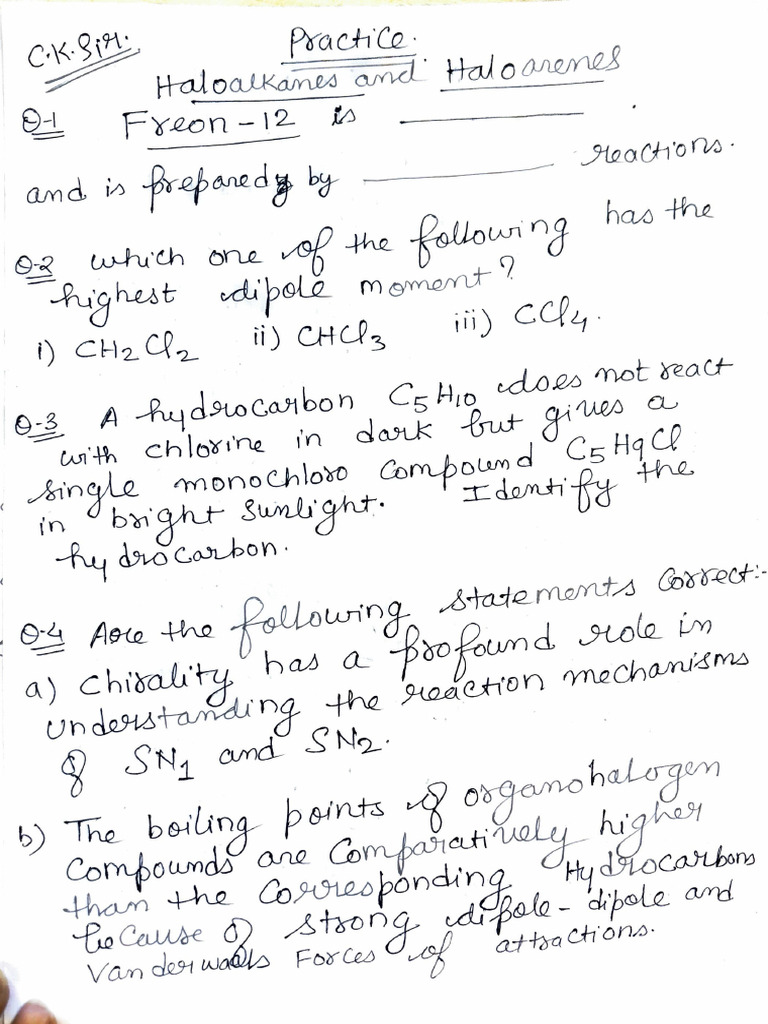 C.K.Sir.
Practice.
Haloalkanes and Haloarenes
Q-1 Freon-12 is __________.
and is prepared by __________ reactions.
Q-2 which one of the following has the
highest dipole moment?
i) CH2Cl2 ii) CHCl3 iii) CCl4.
Q-3 A hydrocarbon C5H10 does not react
with chlorine in dark but gives a
single monochloro compound C5H9Cl
in bright sunlight. Identify the
hydrocarbon.
Q-4 Are the following statements correct:-
a) Chirality has a profound role in
understanding the reaction mechanisms
of SN1 and SN2.
b) The boiling points of organohalogen
compounds are comparatively higher
than the corresponding Hydrocarbons
because of strong dipole-dipole and
Vanderwaals Forces of attractions.